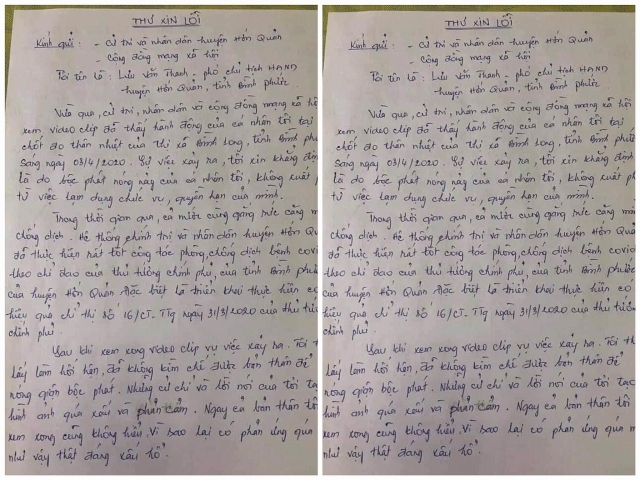 THƯ XIN LỖI
Kính gửi: - Cử tri và nhân dân huyện Hớn Quản
- Cộng đồng mạng xã hội
Tôi tên là: Lưu Văn Thanh - phó chủ tịch HĐND
huyện Hớn Quản, tỉnh Bình Phước
Vừa qua, cử tri, nhân dân và cộng đồng mạng xã hội
xem video clip đã thấy hành động của cá nhân tôi tại
chốt đo thân nhiệt của thị xã Bình Long, tỉnh Bình Phước
sáng ngày 03/4/2020. Sự việc xảy ra, tôi xin khẳng định
là do bộc phát nóng nảy của cá nhân tôi, không xuất p
từ việc lạm dụng chức vụ, quyền hạn của mình.
Trong thời gian qua, cả nước cùng gắng sức căng m
chống dịch. Hệ thống chính trị và nhân dân huyện Hớn Quả
đã thực hiện rất tốt công tác phòng, chống dịch bệnh covi
theo chỉ đạo của thủ tướng chính phủ, của tỉnh Bình Phước
của huyện Hớn Quản đặc biệt là triển khai thực hiện có
hiệu quả chỉ thị số 16/CT. TTg ngày 31/3/2020 của thủ tướng
chính phủ.
Sau khi xem xong video clip vụ việc xảy ra. Tôi th
lấy làm hối hận, đã không kìm chế được bản thân để
nóng giận bộc phát. Những cử chỉ và lời nói của tôi tạo
hình ảnh quá xấu và phản cảm. Ngay cả bản thân tôi
xem xong cũng không hiểu, vì sao lại có phản ứng quá m
như vậy thật đáng xấu hổ.
THƯ XIN LỖI
Kính gửi: - Cử tri và nhân dân huyện Hớn Quản
- Cộng đồng mạng xã hội
Tôi tên là: Lưu Văn Thanh - phó chủ tịch HĐND
huyện Hớn Quản, tỉnh Bình Phước
Vừa qua, cử tri, nhân dân và cộng đồng mạng xã hộ
xem video clip đã thấy hành động của cá nhân tôi tại
chốt đo thân nhiệt của thị xã Bình Long, tỉnh Bình phướ
sáng ngày 03/4/2020. Sự việc xảy ra, tôi xin khẳng đị
là do bộc phát nóng nảy của cá nhân tôi, không xuất p
từ việc lạm dụng chức vụ, quyền hạn của mình.
Trong thời gian qua, cả nước cùng gắng sức căng m
chống dịch. Hệ thống chính trị và nhân dân huyện Hớn Qu
đã thực hiện rất tốt công tác phòng, chống dịch bệnh covi
theo chỉ đạo của thủ tướng chính phủ, của tỉnh Bình Phước
của huyện Hớn Quản đặc biệt là triển khai thực hiện có
hiệu quả chỉ thị số 16/CT. TTg ngày 31/3/2020 của thủ tướng
chính phủ.
Sau khi xem xong video clip vụ việc xảy ra. Tôi th
lấy làm hối hận, đã không kìm chế được bản thân để
nóng giận bộc phát. Những cử chỉ và lời nói của tôi tạ
hình ảnh quá xấu và phản cảm. Ngay cả bản thân tôi
xem xong cũng không hiểu, vì sao lại có phản ứng quá m
như vậy thật đáng xấu hổ.